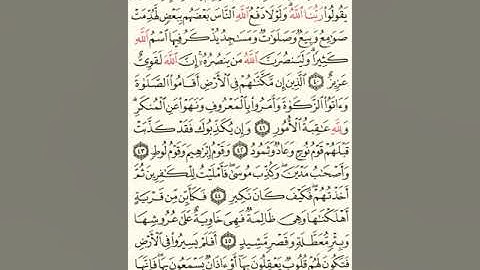 يَقُولُواْ رَبُّنَا ٱللَّهُۗ وَلَوۡلَا دَفۡعُ ٱللَّهِ ٱلنَّاسَ بَعۡضَهُم بِبَعۡضٖ لَّهُدِّمَتۡ
صَوَٰمِعُ وَبِيَعٞ وَصَلَوَٰتٞ وَمَسَٰجِدُ يُذۡكَرُ فِيهَا ٱسۡمُ ٱللَّهِ
كَثِيرٗاۗ وَلَيَنصُرَنَّ ٱللَّهُ مَن يَنصُرُهُۥٓۚ إِنَّ ٱللَّهَ لَقَوِيٌّ
عَزِيزٌ ٤٠ ٱلَّذِينَ إِن مَّكَّنَّٰهُمۡ فِي ٱلۡأَرۡضِ أَقَامُواْ ٱلصَّلَوٰةَ
وَءَاتَوُاْ ٱلزَّكَوٰةَ وَأَمَرُواْ بِٱلۡمَعۡرُوفِ وَنَهَوۡاْ عَنِ ٱلۡمُنكَرِۗ
وَلِلَّهِ عَٰقِبَةُ ٱلۡأُمُورِ ٤١ وَإِن يُكَذِّبُوكَ فَقَدۡ كَذَّبَتۡ
قَبۡلَهُمۡ قَوۡمُ نُوحٖ وَعَادٞ وَثَمُودُ ٤٢ وَقَوۡمُ إِبۡرَٰهِيمَ وَقَوۡمُ لُوطٖ ٤٣
وَأَصۡحَٰبُ مَدۡيَنَۖ وَكُذِّبَ مُوسَىٰۖ فَأَمۡلَيۡتُ لِلۡكَٰفِرِينَ ثُمَّ
أَخَذۡتُهُمۡۖ فَكَيۡفَ كَانَ نَكِيرِ ٤٤ فَكَأَيِّن مِّن قَرۡيَةٍ
أَهۡلَكۡنَٰهَا وَهِيَ ظَالِمَةٞ فَهِيَ خَاوِيَةٌ عَلَىٰ عُرُوشِهَا
وَبِئۡرٖ مُّعَطَّلَةٖ وَقَصۡرٖ مَّشِيدٍ ٤٥ أَفَلَمۡ يَسِيرُواْ فِي ٱلۡأَرۡضِ
فَتَكُونَ لَهُمۡ قُلُوبٞ يَعۡقِلُونَ بِهَآ أَوۡ ءَاذَانٞ يَسۡمَعُونَ بِهَاۖ فَإِنَّهَا